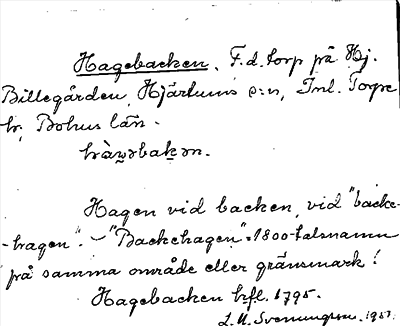 Hagebacken. F.d. torp på Hj.
Billegården, Hjärtums s:n, Inl. Torpe
hr, Bohus län.
Hagen vid backen, vid "backe-
-hagen". - "Backehagen" = 1800-talsnamn
på samma område eller gränsmark!
Hagebacken hfl. 1795.
L.M. Svenungsson. 1951.